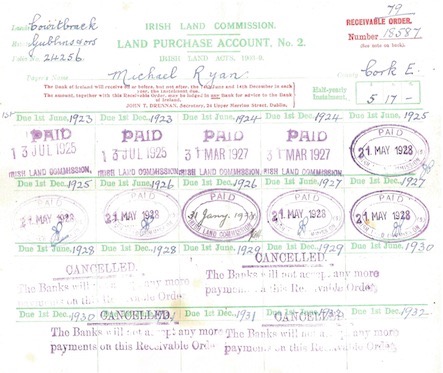 79
IRISH LAND COMMISSION.
RECEIVABLE ORDER.
Number 15587
(See note on back)
LAND PURCHASE ACCOUNT, No. 2.
24256
IRISH LAND ACTS,
Payer's Name Michael Ryan County Cork E.
The Bank of Ireland will receive on or before, but not after, the
and 14th December in each
year, the Instalment due.
The amount, together with this Receivable Order, may be lodged in any Bank for advice to the Bank
of Ireland.
JOHN T. DRENNAN, Secretary, 24 Upper Merrion Street, Dublin.
Half-yearly
Instalment, 5 17 -
1st Due 1st June, 1923 Due 1st Dec., 1923 Due 1st June, 1924 Due 1st Dec., 1924 Due 1st June, 1925
PAID PAID PAID PAID PAID
13 JUL 1925 13 JUL 1925 31 MAR 1927 31 MAR 1927 21 MAY 1928
IRISH LAND COMMISSION. IRISH LAND COMMISSION. IRISH LAND COMMISSION. IRISH LAND COMMISSION.
Due 1st Dec., 1925 Due 1st June, 1926 Due 1st Dec., 1926 Due 1st June, 1927 Due 1st Dec., 1927
PAID PAID PAID PAID PAID
21 MAY 1928 21 MAY 1928 31 Jany. 21 MAY 1928 21 MAY 1928
Due 1st June, 1928 Due 1st Dec., 1928 Due 1st June, 1929 Due 1st Dec., 1929 Due 1st June, 1930
CANCELLED. CANCELLED.
The Banks will not accept any more The Banks will not accept any more
payments on this Receivable Order. payments on this Receivable Order.
Due 1st Dec., 1930 Due 1st June, 1931 Due 1st Dec., 1931 Due 1st June, Due 1st Dec., 1932
CANCELLED. CANCELLED.
The Banks will not accept any more The Banks will not accept any more
payments on this Receivable Order. payments on this Receivable Order.